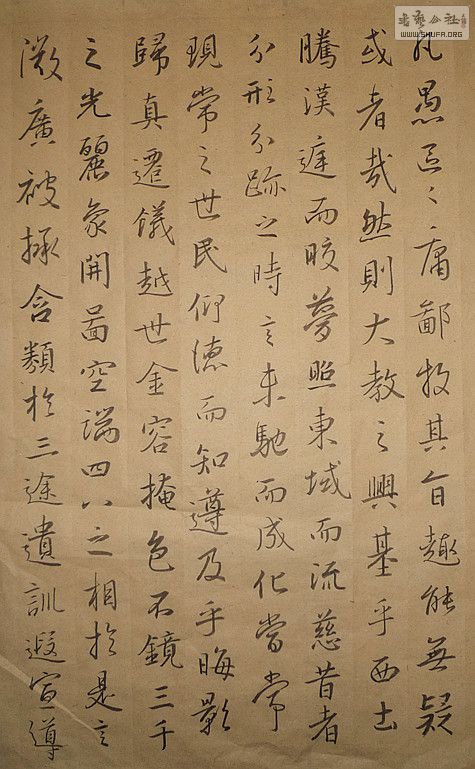 書藝公社
WWW.SHUFA.ORG
凡愚區〻庸鄙投其旨趣能無疑
或者哉然則大教之興基乎西土
騰漢庭而皎夢照東域而流慈昔者
分形分跡之時言未馳而成化當常
現常之世民仰德而知遵及乎晦影
歸真遷儀越世金容掩色不鏡三千
之光麗象開圖空端四八之相於是言
微廣被拯含類於三途遺訓遐宣導